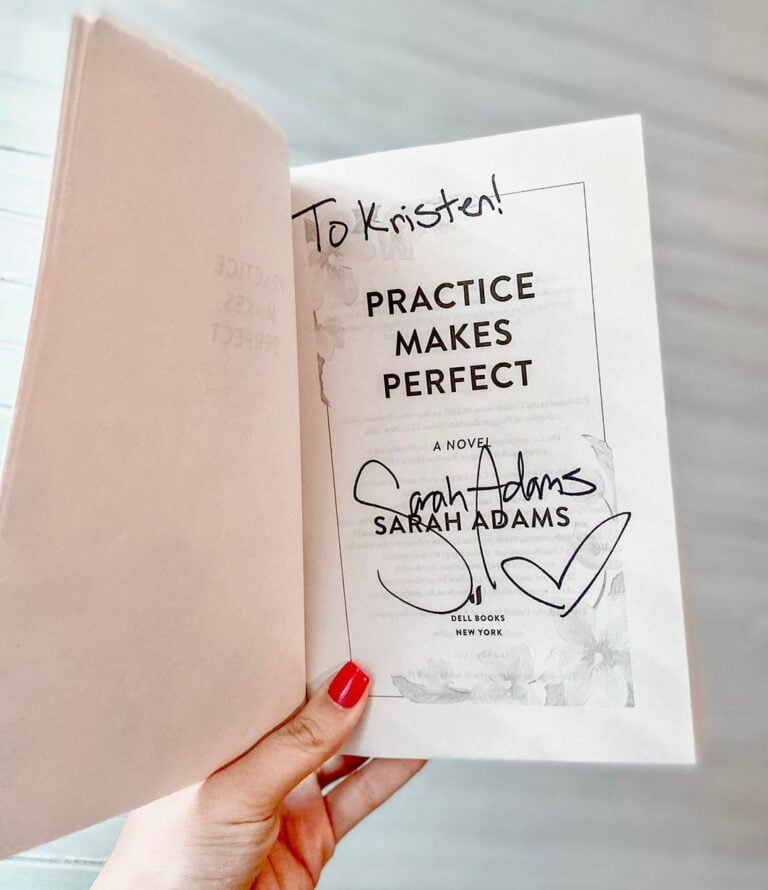 To Kristen!
PRACTICE
MAKES
PERFECT
A NOVEL
Sarah Adams
SARAH ADAMS
DELL BOOKS
NEW YORK
PRACTICE
MAKES
PERFECT